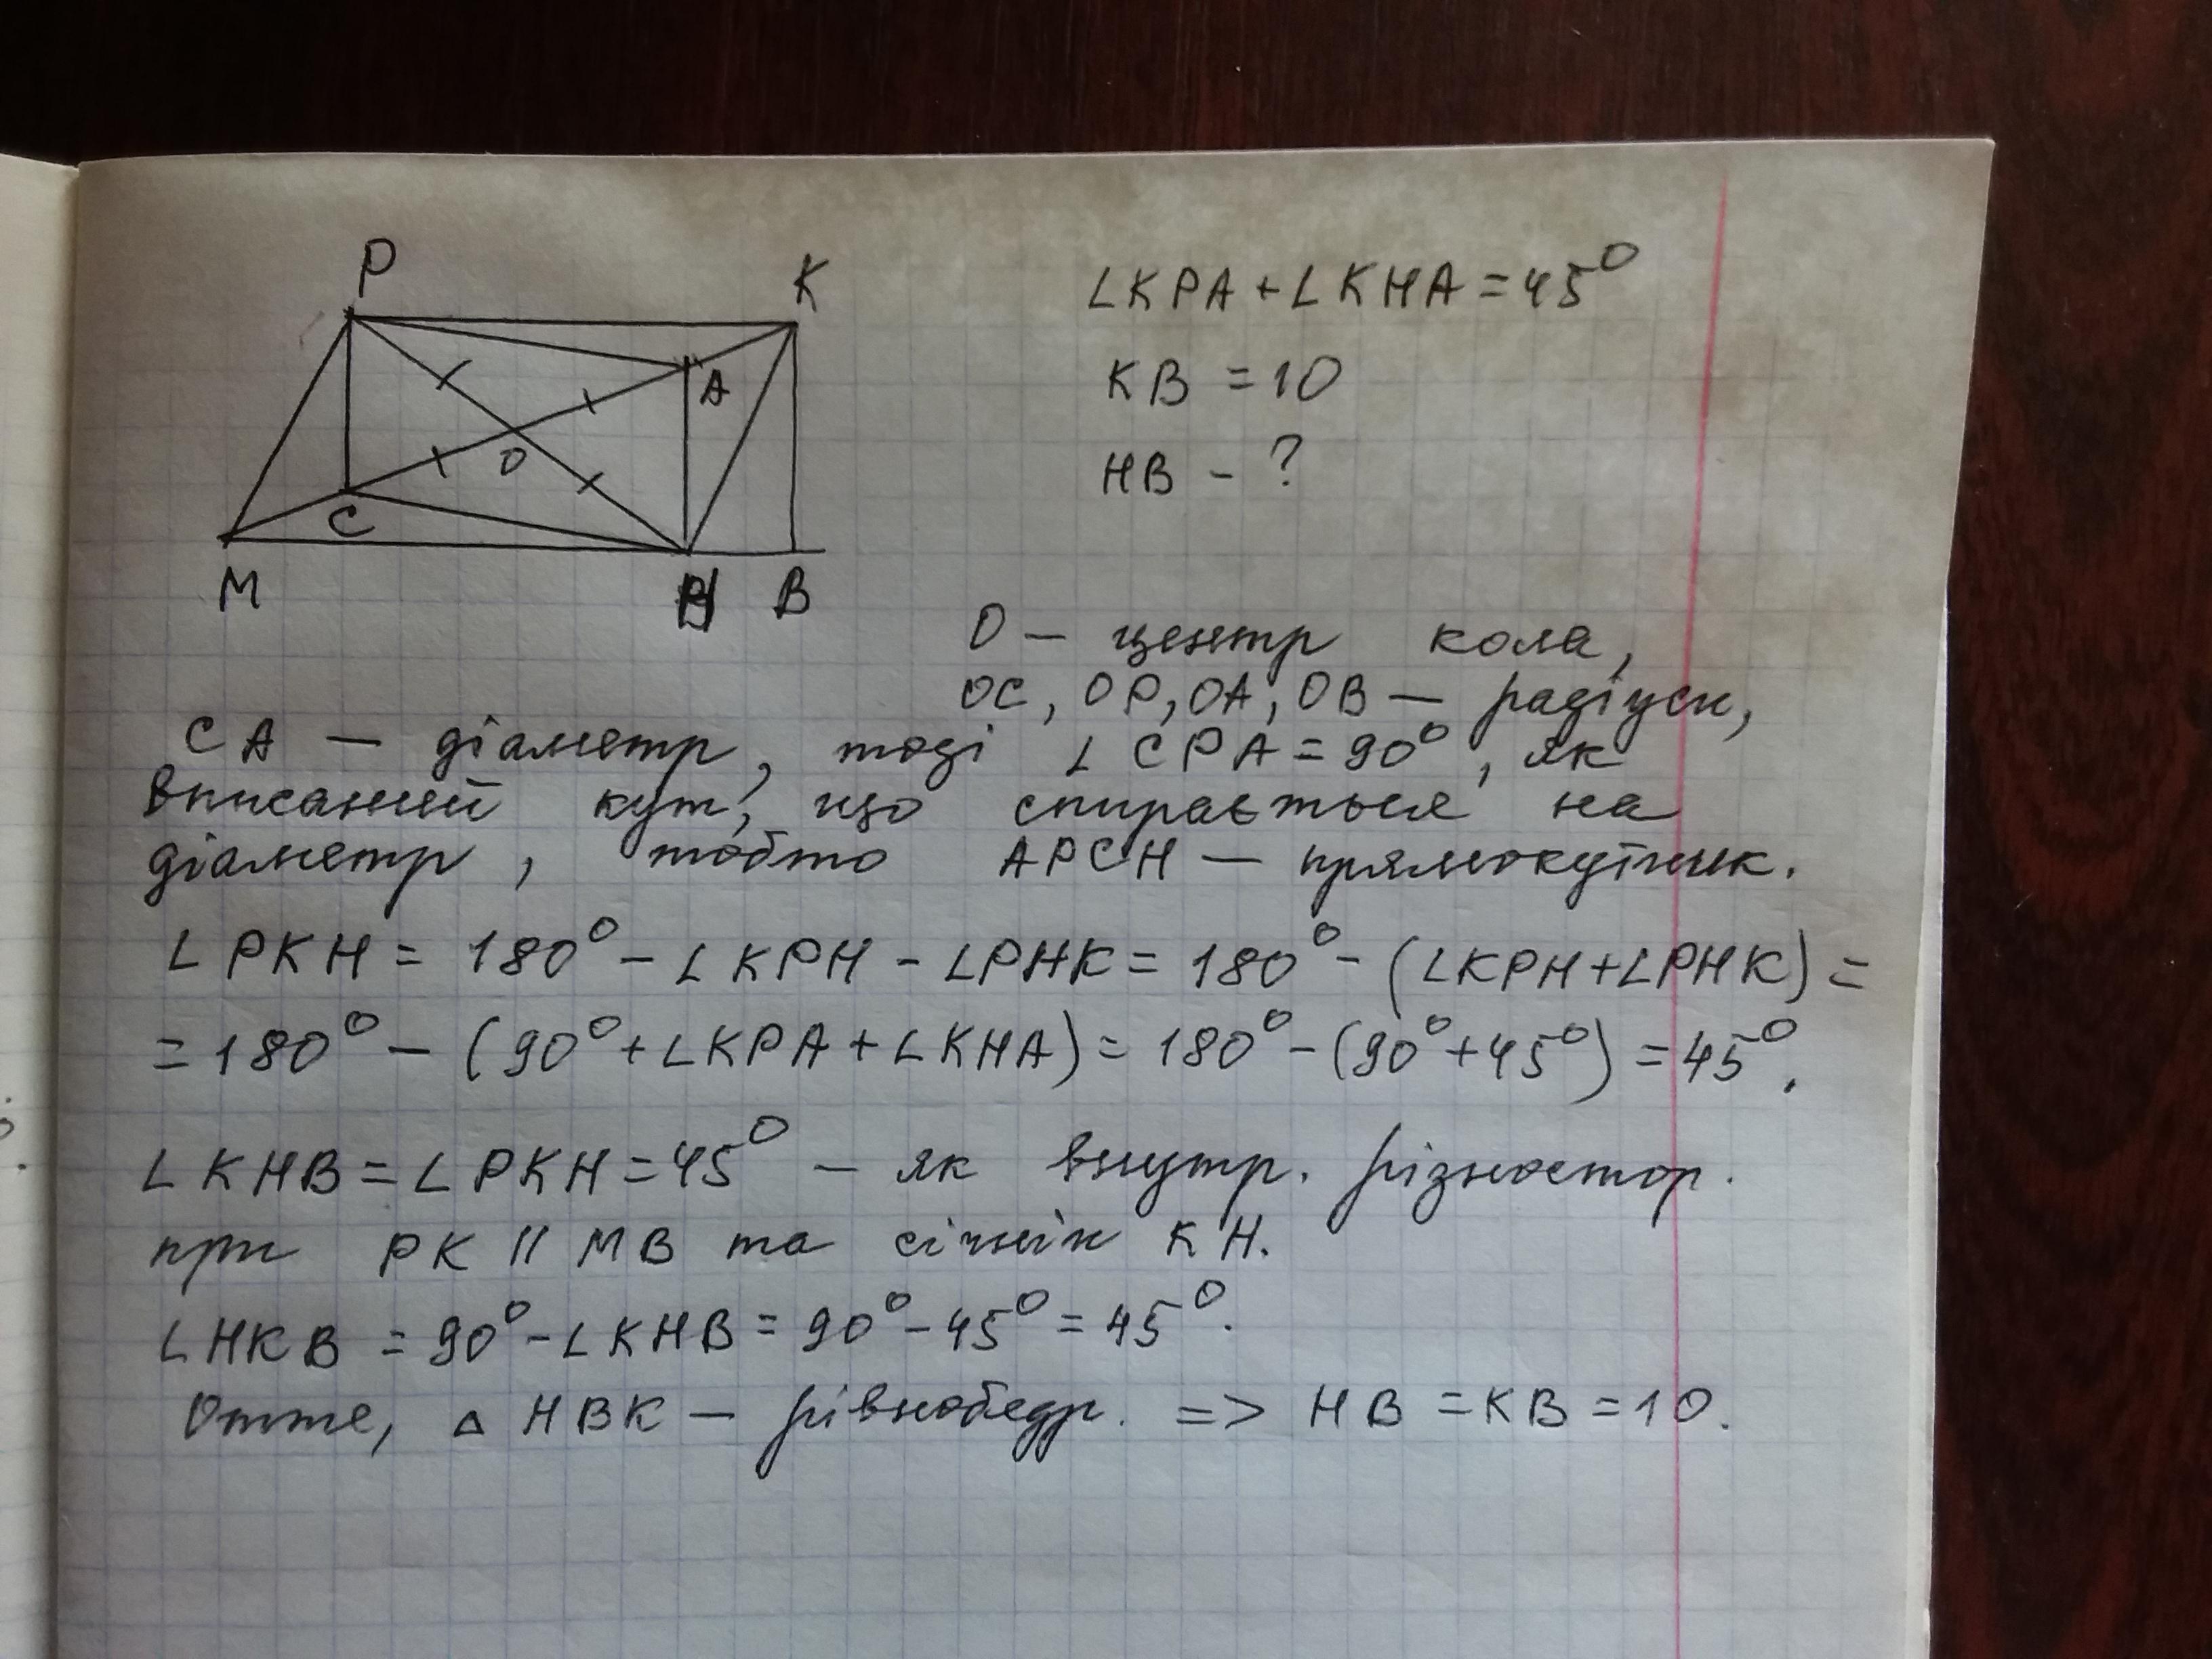 P
K
A
O
C
M
H
B
∠KPA + ∠KHA = 45°
KB = 10
HB - ?
O — центр кола,
OC, OP, OA, OB — радіуси,
CA — діаметр, тоді ∠CPA = 90°, як
вписаний кут, що спирається на
діаметр, тобто APCH — прямокутник.
∠PKH = 180° - ∠KPH - ∠PHK = 180° - (∠KPH + ∠PHK) =
= 180° - (90° + ∠KPA + ∠KHA) = 180° - (90° + 45°) = 45°.
∠KHB = ∠PKH = 45° - як внутр. різностор.
при PK || MB та січній KH.
∠HKB = 90° - ∠KHB = 90° - 45° = 45°.
Отже, △ HBK — рівнобедр. => HB = KB = 10.